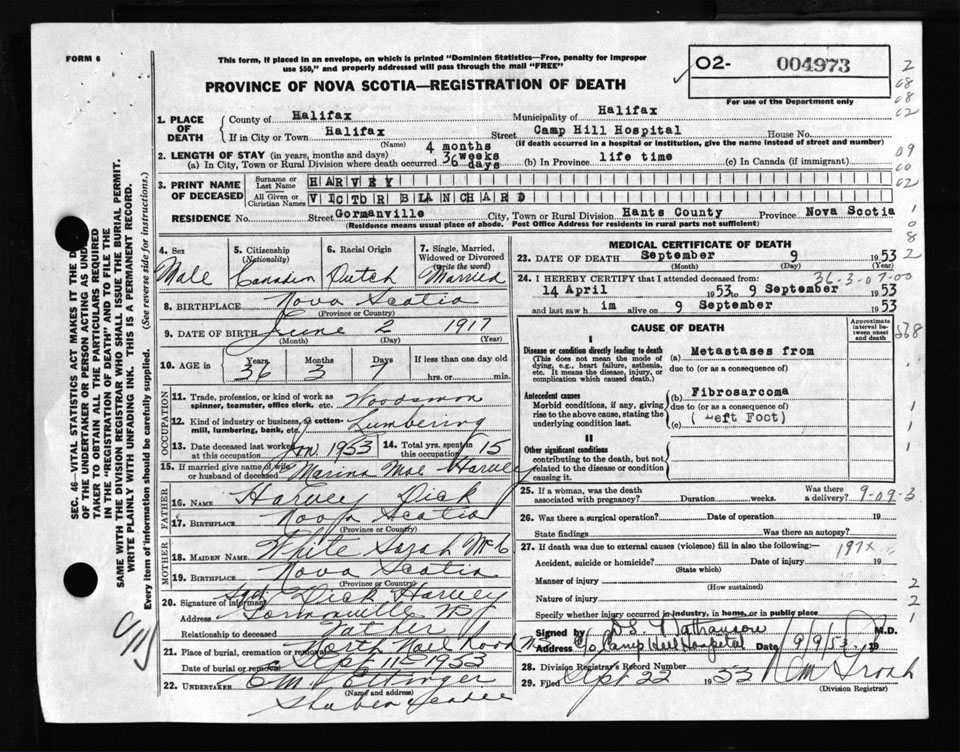 FORM 6
This form, if placed in an envelope, on which is printed "Dominion Statistics—Free, penalty for improper
use $50," and properly addressed will pass through the mail "FREE"
PROVINCE OF NOVA SCOTIA—REGISTRATION OF DEATH
02- 004973
For use of the Department only
1. PLACE OF DEATH
County of Halifax Municipality of Halifax
If in City or Town Halifax Street Camp Hill Hospital House No.
(Name) (If death occurred in a hospital or institution, give the name instead of street and number)
2. LENGTH OF STAY (in years, months and days) 4 months
(a) In City, Town or Rural Division where death occurred 3 weeks 6 days (b) In Province life time (c) In Canada (if immigrant)
3. PRINT NAME OF DECEASED
Surname or Last Name HARVEY
All Given or Christian Names VICTOR BLANCHARD
RESIDENCE No. Street Gormanville City, Town or Rural Division Hants County Province Nova Scotia
(Residence means usual place of abode. Post Office Address for residents in rural parts not sufficient)
4. Sex Male
5. Citizenship (Nationality) Canadian
6. Racial Origin Dutch
7. Single, Married, Widowed or Divorced (write the word) Married
8. BIRTHPLACE Nova Scotia
(Province or Country)
9. DATE OF BIRTH June 2 1917
(Month) (Day) (Year)
10. AGE in Years 36 Months 3 Days 7 If less than one day old
hrs. or min.
OCCUPATION
11. Trade, profession, or kind of work as spinner, teamster, office clerk, etc. Woodsman
12. Kind of industry or business, as cotton-mill, lumbering, bank, etc. Lumbering
13. Date deceased last worked at this occupation Jan. 1953 14. Total yrs. spent in this occupation 15
15. If married give name of wife or husband of deceased Marina Mae Harvey
FATHER
16. NAME Harvey Dick
17. BIRTHPLACE Nova Scotia
(Province or Country)
MOTHER
18. MAIDEN NAME White Sarah
19. BIRTHPLACE Nova Scotia
(Province or Country)
20. Signature of informant Sgd. Dick Harvey
Address Gormanville N S
Relationship to deceased Father
21. Place of burial, cremation or removal North Noel Road
Date of burial or removal Sept 11 - 1953
22. UNDERTAKER E M Ettinger
(Name and address)
Shubenacadie
MEDICAL CERTIFICATE OF DEATH
23. DATE OF DEATH September 9 1953
(Month) (Day) (Year)
24. I HEREBY CERTIFY that I attended deceased from: 36-3-07-00
14 April 1953 to 9 September 1953
and last saw h im alive on 9 September 1953
CAUSE OF DEATH
Approximate interval between onset and death
I
Disease or condition directly leading to death (a) Metastases from
(This does not mean the mode of dying, e.g., heart failure, asthenia, etc. It means the disease, injury, or complication which caused death.)
due to (or as a consequence of)
Antecedent causes (b) Fibrosarcoma
Morbid conditions, if any, giving rise to the above cause, stating the underlying condition last.
due to (or as a consequence of)
(c) (Left Foot)
II
Other significant conditions
contributing to the death, but not related to the disease or condition causing it.
25. If a woman, was the death associated with pregnancy? Duration weeks. Was there a delivery? 9-09-3
26. Was there a surgical operation? Date of operation 19
State findings Was there an autopsy?
27. If death was due to external causes (violence) fill in also the following:— 197X
Accident, suicide or homicide? Date of injury 19
(State which)
Manner of injury
(How sustained)
Nature of injury
Specify whether injury occurred in industry, in home, or in public place
Signed by Nathanson M.D.
Address c/o Camp Hill Hospital 9/9/53
28. Division Registrar's Record Number
29. Filed Sept 22 1953
(Division Registrar)
SEC. 46—VITAL STATISTICS ACT MAKES IT THE
OF THE UNDERTAKER OR PERSON ACTING AS UNDER
TAKER TO OBTAIN ALL THE PARTICULARS REQUIRED
IN THE "REGISTRATION OF DEATH" AND TO FILE THE
SAME WITH THE DIVISION REGISTRAR WHO SHALL ISSUE THE BURIAL PERMIT.
WRITE PLAINLY WITH UNFADING INK. THIS IS A PERMANENT RECORD.
Every item of information should be carefully supplied. (See reverse side for instructions.)